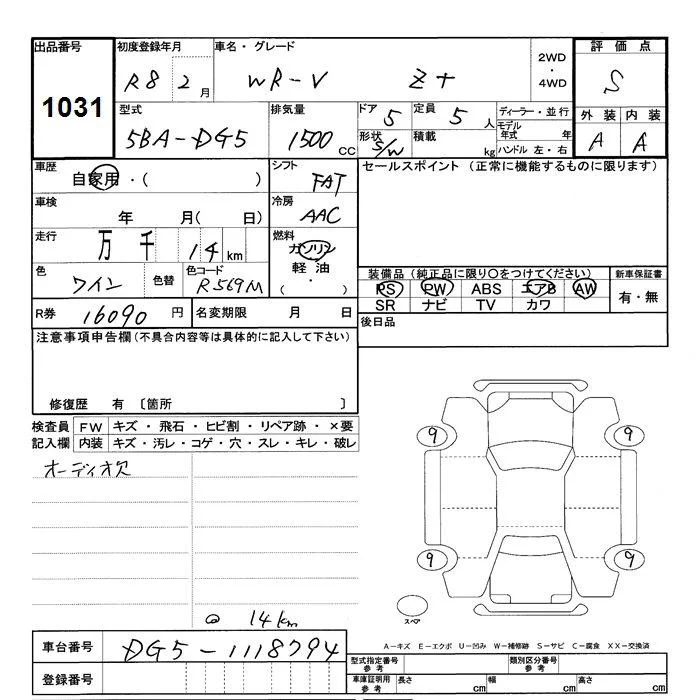 出品番号 初度登録年月 車名・グレード 2WD・4WD 評価点
1031 R8 2月 WR-V Z+ S
型式 排気量 ドア 5 定員 5人 ディーラー・並行 外装 内装
5BA-DG5 1500cc 形状 S/W 積載 kg モデル年式 年 A A
ハンドル 左・右
車歴 自家用・( ) シフト FAT セールスポイント (正常に機能するものに限ります)
車検 年 月( 日) 冷房 AAC
走行 万 千 14km 燃料 ガソリン 軽油 ( ・ )
色 ワイン 色替 色コード R569M 装備品 (純正品に限り○をつけてください) 新車保証書
PS PW ABS エアB AW 有・無
SR ナビ TV カワ
R券 16090円 名変期限 月 日 後日品
注意事項申告欄(不具合内容等は具体的に記入して下さい)
修復歴 有 〔箇所 〕
検査員 FW キズ・飛石・ヒビ割・リペア跡・×要
記入欄 内装 キズ・汚レ・コゲ・穴・スレ・キレ・破レ
オーディオ欠
9 9
9 9
スペア
@ 14km
車台番号 DG5-1118794 A-キズ E-エクボ U-凹み W-補修跡 S-サビ C-腐食 XX-交換済
登録番号 型式指定番号 参考 類別区分番号 参考
車庫証明用 参考 長さ cm 幅 cm 高さ cm